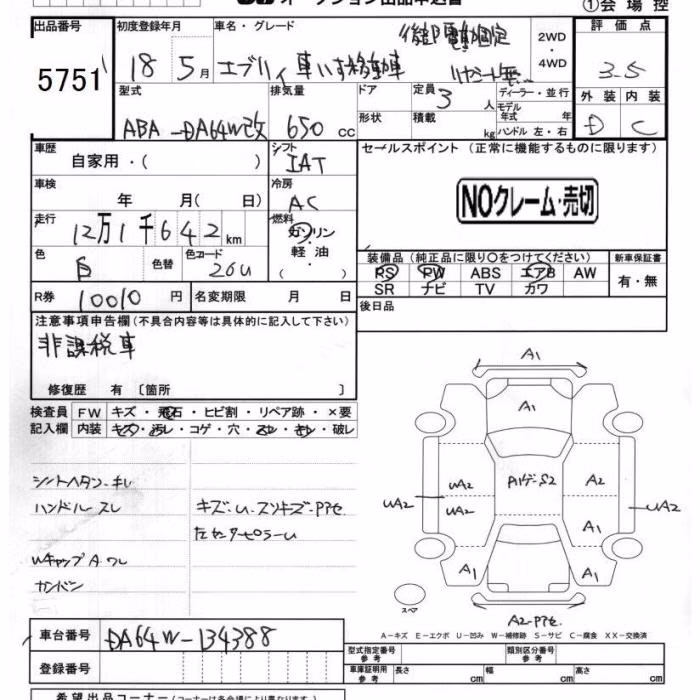 ①会場控
出品番号
5751
初度登録年月
18 5月
車名・グレード
エブリィ 車いす移動車
後部電動固定
リモート無
2WD
・
4WD
評価点
3.5
外装 内装
D C
型式
ABA-DA64W改
排気量
650 cc
ドア
形状
定員
3 人
積載
kg
ディーラー・並行
モデル年式 年
ハンドル 左・右
車歴
自家用・( )
シフト
IAT
車検
年 月( 日)
冷房
AC
走行
12万1千642km
燃料
ガソリン
・
軽油
( )
色
白
色替
色コード
26U
R券
10010円
名変期限 月 日
セールスポイント (正常に機能するものに限ります)
NOクレーム・売切
装備品 (純正品に限り○をつけてください)
PS PW ABS エアB AW
SR ナビ TV カワ
新車保証書
有・無
後日品
注意事項申告欄(不具合内容等は具体的に記入して下さい)
非課税車
修復歴 有 〔箇所 〕
検査員記入欄
FW キズ・飛石・ヒビ割・リペア跡・×要
内装 キズ・汚レ・コゲ・穴・スレ・キレ・破レ
シートヘタン・キレ
ハンドルスレ
キズ・U・スリキズ・Pアセ
左センターピラーU
WキャップA・ワレ
カンバン
A1
A1
Aゲ・S2
UA2
UA2
UA2
A2
A1
UA2
A1
A1
A2・Pアセ
スペア
A-キズ E-エクボ U-凹み W-補修跡 S-サビ C-腐食 XX-交換済
車台番号
DA64W-134388
登録番号
型式指定番号
参考
類別区分番号
参考
車庫証明用
参考
長さ cm
幅 cm
高さ cm
希望出品コーナー